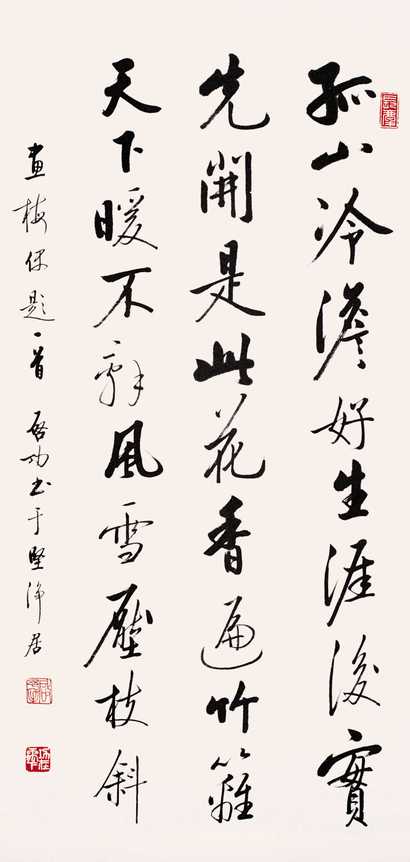 孤山冷澹好生涯後實
先開是此花香遍竹籬
天下暖不辭風雪壓枝斜
畫梅題一首 啟功書于堅淨居